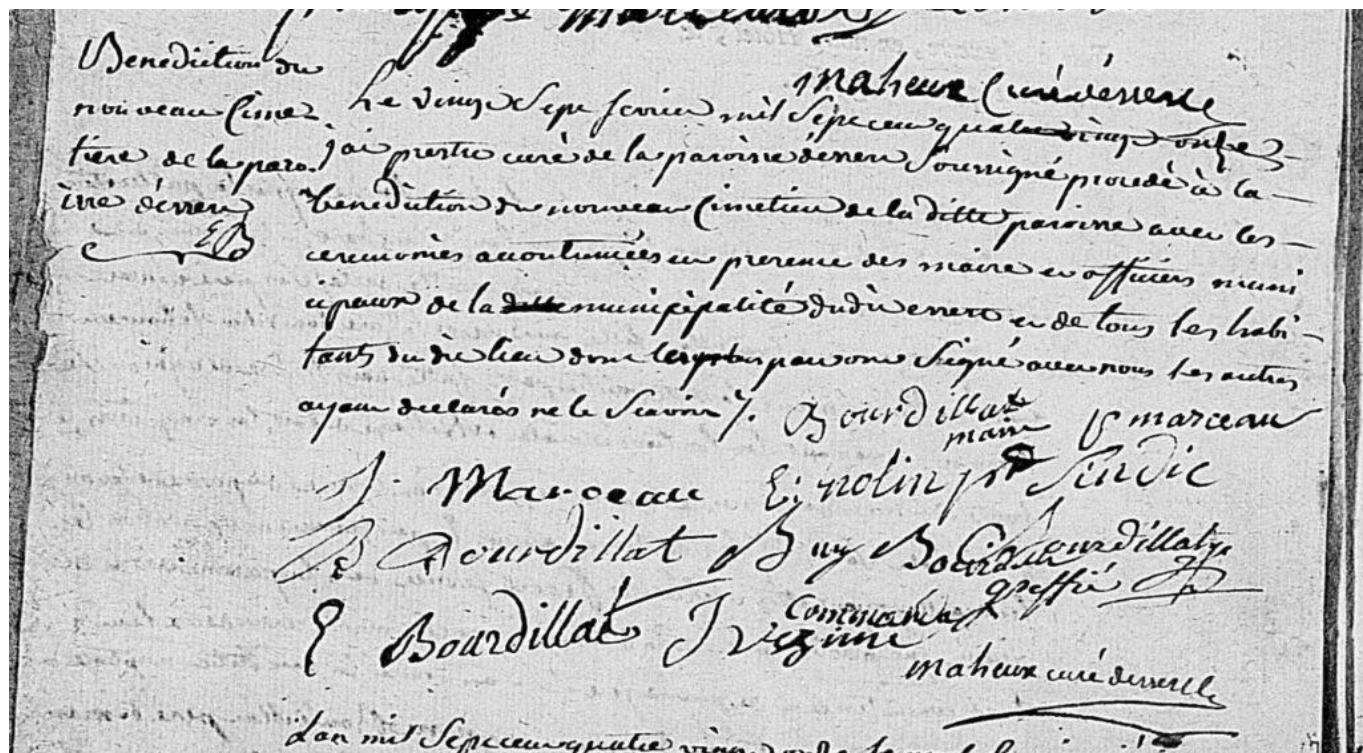 maheux curé désserte
Benediction du
nouveau Cime
tiere de la paro.
isse desserte
Le vingt Sept fevrier mil Sept cent quatre vingt onze
jai prestre curé de la paroisse desserte Soussigné procedé à la
benediction du nouveau Cimetiere de la ditte paroisse avec les
ceremonies accoutumées en presence des maire et officiers muni
cipaux de la municipalité du dit essert et de tous les habi-
tants du dit lieu dont les pau ont Signé avec nous les autres
ayant declarés ne le Scavoir
Bourdillat
maire
marceau
J. Marceau
E. nolin Sindic
Bourdillat Buy
Bourdillat
greffié
E Bourdillat
J Vezinne
maheux curé desserte
Lan mil Sept cent quatre vingt onze